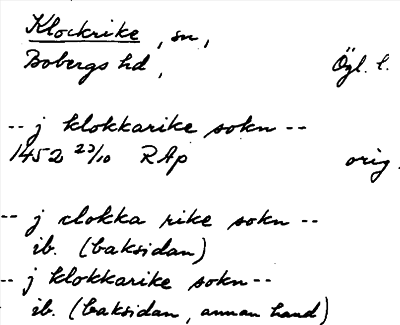 Klockrike, sn,
Bobergs hd, Ögl. l.
-- j klokkarike sokn --
1452 23/10 RAp orig.
-- j clokka rike sokn --
ib. (baksidan)
-- j klokkarike sokn --
ib. (baksidan, annan hand)